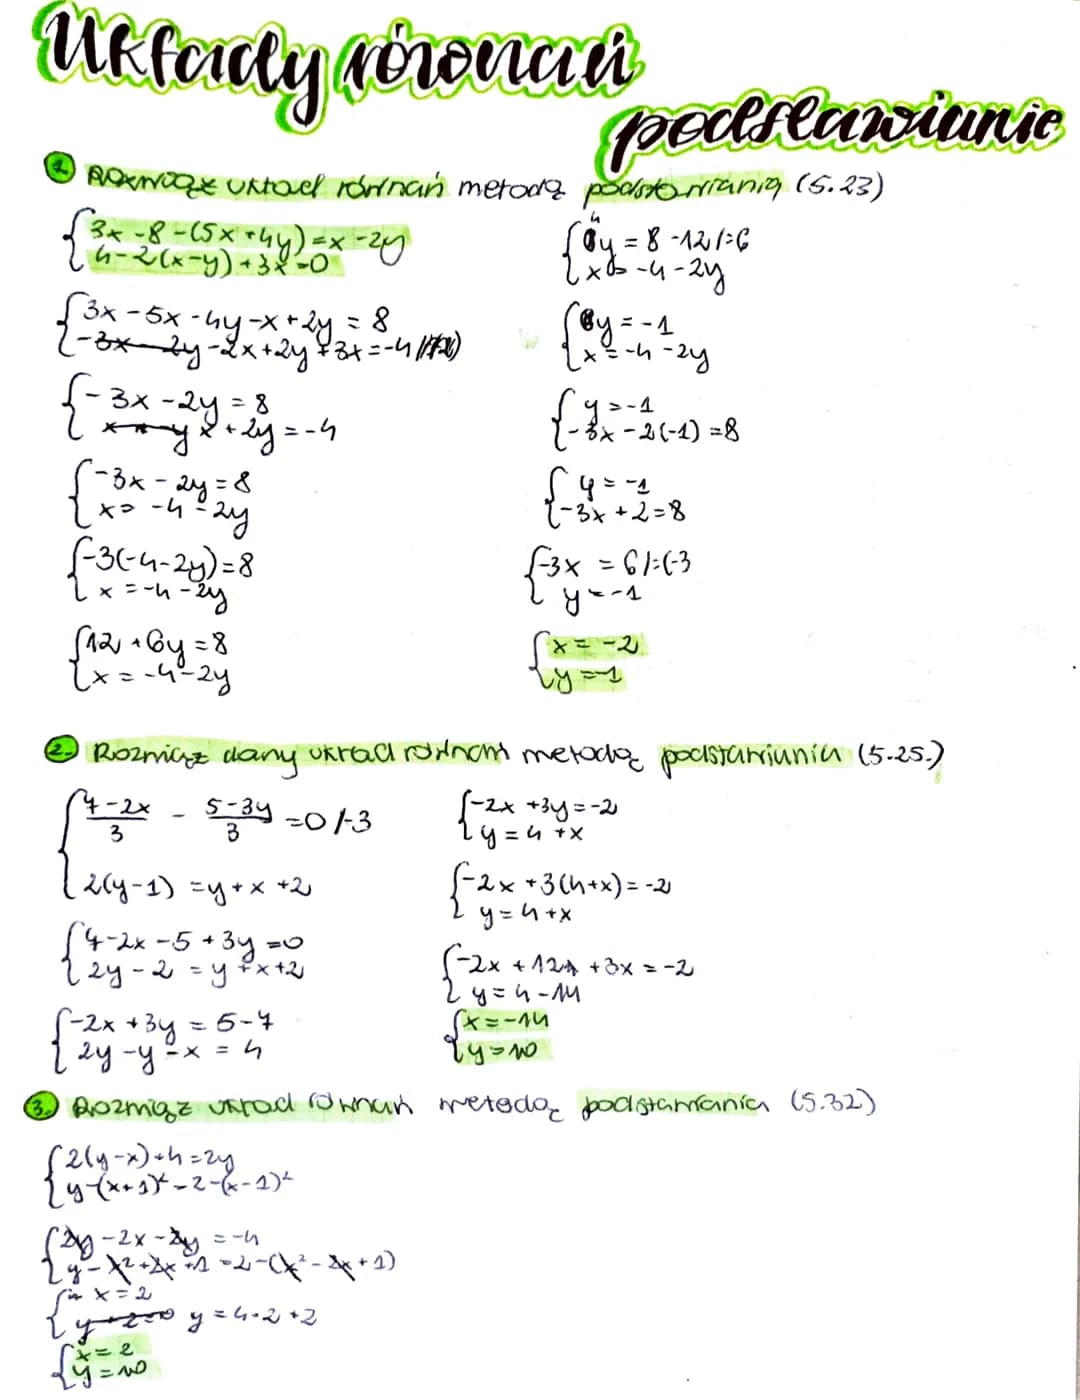 Układy równań
podstawianie
1. Rozwiąż układ równań metodą podstawiania (5.23)
{3x - 8 - (5x + 4y) = x - 2y
4 - 2(x - y) + 3x = 0
{3x - 5x - 4y - x + 2y = 8
-2x + 2y + 3x = -4
{-3x - 2y = 8
x + 2y = -4
{-3x - 2y = 8
x = -4 - 2y
{-3(-4-2y) = 8
x = -4 - 2y
{12 + 6y = 8
x = -4 - 2y
{4y = 8 - 12 /:6
x = -4 - 2y
{y = -1
x = -4 - 2y
{y = -1
-3x - 2(-1) = 8
{y = -1
-3x + 2 = 8
{-3x = 6 /:(-3
y = -1
{x = -2
y = -1
2. Rozwiąż dany układ równań metodą podstawiania (5.25.)
{7-2x/3 - 5-3y/3 = 0 /·3
2(y-1) = y + x + 2
{7-2x - 5 + 3y = 0
2y - 2 = y + x + 2
{-2x + 3y = 5 - 7
2y - y - x = 4
{-2x + 3y = -2
y = 4 + x
{-2x + 3(4+x) = -2
y = 4 + x
{-2x + 12 + 3x = -2
y = 4 - 14
{x = -14
y = 10
3. Rozwiąż układ równań metodą podstawiania (5.32)
{2(y-x)+4 = 2y
y-(x+1)² = 2-(x-1)²
{2y - 2x - 2y = -4
y - x² + 2x + 1 = 2-(x² - 2x + 1)
{x = 2
y = 4·2 + 2
{x = 2
y = 10